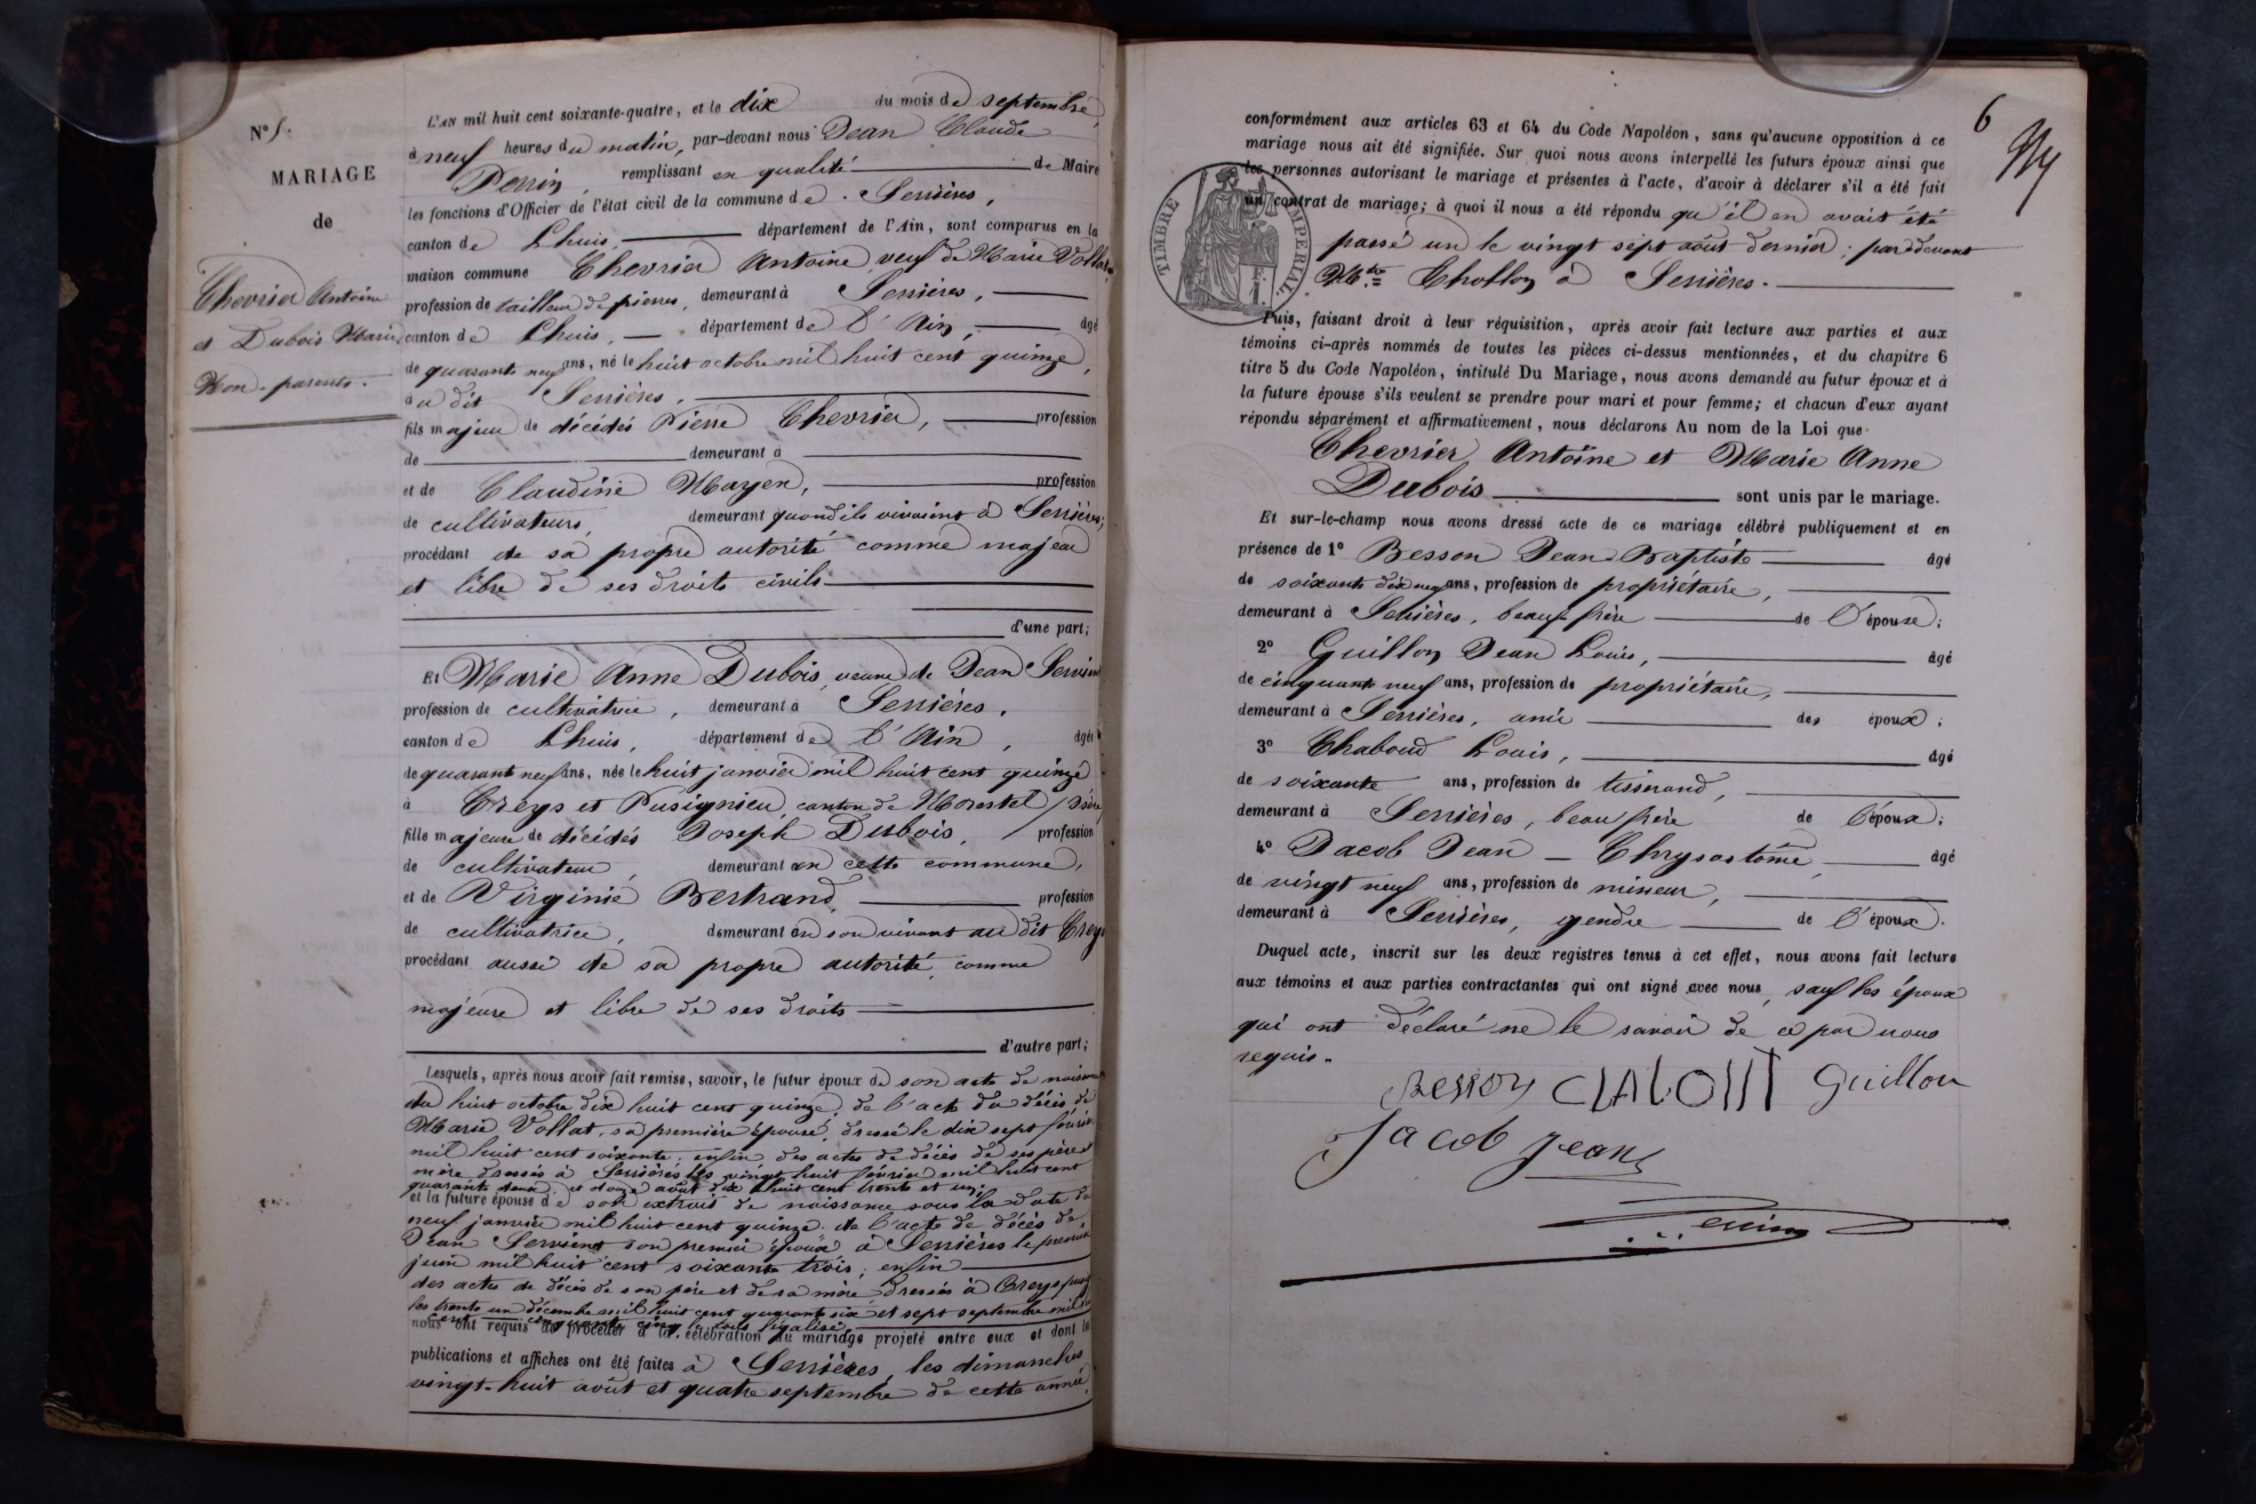 N° 5.
MARIAGE
de
Chevrier Antoine
et Dubois Marie
Non-parents.
L'AN mil huit cent soixante-quatre, et le dix du mois de septembre,
à neuf heures du matin, par-devant nous Jean Claude
Perrin, remplissant en qualité de Maire
les fonctions d'Officier de l'état civil de la commune de Serrières,
canton de Lhuis, département de l'Ain, sont comparus en la
maison commune Chevrier Antoine veuf de Marie Vollat,
profession de tailleur de pierres, demeurant à Serrières,
canton de Lhuis, département de l'Ain, âgé
de quarante neuf ans, né le huit octobre mil huit cent quinze,
au dit Serrières,
fils majeur de décédés Pierre Chevrier, profession
de demeurant à
et de Claudine Mayen, profession
de cultivateurs, demeurant quand ils vivaient à Serrières;
procédant de sa propre autorité comme majeur
et libre de ses droits civils
d'une part;
Et Marie Anne Dubois, veuve de Jean Servient
profession de cultivatrice, demeurant à Serrières,
canton de Lhuis, département de l'Ain, âgée
de quarante neuf ans, née le huit janvier mil huit cent quinze
à Creys et Pusignieu, canton de Morestel (Isère)
fille majeure de décédés Joseph Dubois, profession
de cultivateur, demeurant en cette commune,
et de Virginie Bertrand, profession
de cultivatrice, demeurant en son vivant au dit Creys
procédant aussi de sa propre autorité, comme
majeure et libre de ses droits
d'autre part;
Lesquels, après nous avoir fait remise, savoir, le futur époux de son acte de naissance
du huit octobre dix huit cent quinze, de l'acte du décès de
Marie Vollat, sa première épouse, dressé le dix sept février
mil huit cent soixante; enfin des actes de décès de ses père et
mère dressés à Serrières les vingt huit février mil huit cent
quarante deux et douze août dix huit cent trente et un;
et la future épouse de son extrait de naissance sous la date du
neuf janvier mil huit cent quinze, de l'acte de décès de
Jean Servient son premier époux à Serrières le premier
juin mil huit cent soixante trois; enfin
des actes de décès de son père et de sa mère dressés à Creys
les trente un décembre mil huit cent quarante six et sept septembre mil huit
cent cinquante cinq le tout légalisé
nous ont requis de procéder à la célébration du mariage projeté entre eux et dont les
publications et affiches ont été faites à Serrières, les dimanches
vingt-huit août et quatre septembre de cette année,
6
conformément aux articles 63 et 64 du Code Napoléon, sans qu'aucune opposition à ce
mariage nous ait été signifiée. Sur quoi nous avons interpellé les futurs époux ainsi que
les personnes autorisant le mariage et présentes à l'acte, d'avoir à déclarer s'il a été fait
un contrat de mariage; à quoi il nous a été répondu qu'il en avait été
passé un le vingt sept août dernier; par devant
Mtre Chollon à Serrières.
TIMBRE IMPERIAL
Puis, faisant droit à leur réquisition, après avoir fait lecture aux parties et aux
témoins ci-après nommés de toutes les pièces ci-dessus mentionnées, et du chapitre 6
titre 5 du Code Napoléon, intitulé Du Mariage, nous avons demandé au futur époux et à
la future épouse s'ils veulent se prendre pour mari et pour femme; et chacun d'eux ayant
répondu séparément et affirmativement, nous déclarons Au nom de la Loi que
Chevrier Antoine et Marie Anne
Dubois sont unis par le mariage.
Et sur-le-champ nous avons dressé acte de ce mariage célébré publiquement et en
présence de 1° Besson Jean-Baptiste âgé
de soixante dix neuf ans, profession de propriétaire,
demeurant à Serrières, beau frère de l'épouse;
2° Guillon Jean Louis, âgé
de cinquante neuf ans, profession de propriétaire,
demeurant à Serrières, ami des époux;
3° Chaboud Louis, âgé
de soixante ans, profession de tisserand,
demeurant à Serrières, beau frère de l'époux;
4° Jacob Jean - Chrysostome, âgé
de vingt neuf ans, profession de mineur,
demeurant à Serrières, gendre de l'époux.
Duquel acte, inscrit sur les deux registres tenus à cet effet, nous avons fait lecture
aux témoins et aux parties contractantes qui ont signé avec nous, sauf les époux
qui ont déclaré ne le savoir de ce par nous
requis.
Besson Guillon
Jacob Jean
Perrin